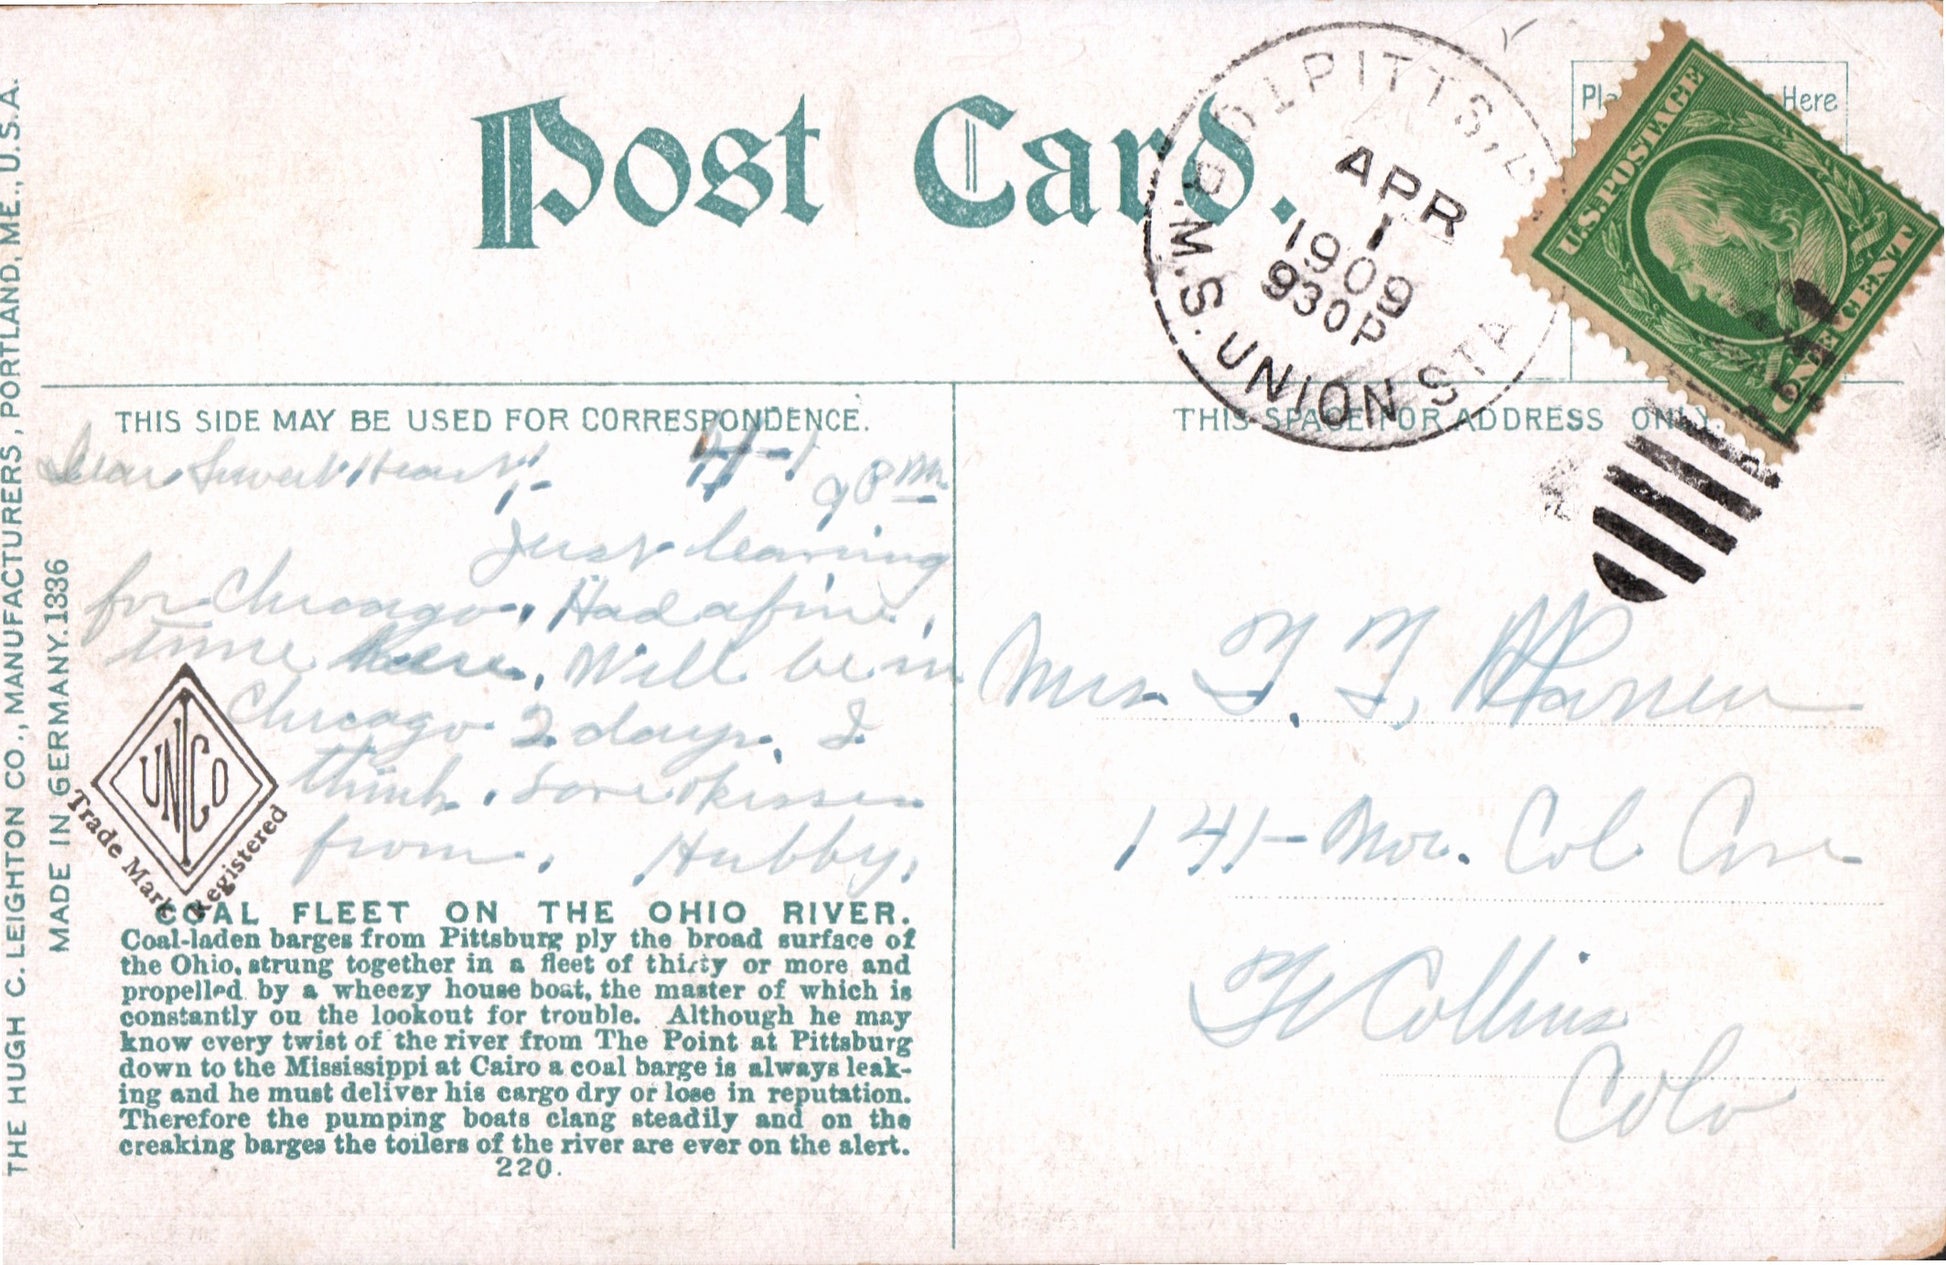 Post Card.
PITTS, P
R.M.S. UNION STA
APR
1
1909
930P
Here
U.S. POSTAGE
ONE CENT
THIS SIDE MAY BE USED FOR CORRESPONDENCE.
THIS SPACE FOR ADDRESS ONLY.
Dear Sweet Heart:- 4-1
9 P M
Just leaving
for Chicago. Had a fine
time here. Will be in
Chicago 2 days. I
think. Love & kisses
from. Hubby.
Mrs. F. F.
141- No. Col Ave
Ft Collins
Colo
UNICO
Trade Mark Registered
COAL FLEET ON THE OHIO RIVER.
Coal-laden barges from Pittsburg ply the broad surface of
the Ohio, strung together in a fleet of thirty or more and
propelled by a wheezy house boat, the master of which is
constantly on the lookout for trouble. Although he may
know every twist of the river from The Point at Pittsburg
down to the Mississippi at Cairo a coal barge is always leak-
ing and he must deliver his cargo dry or lose in reputation.
Therefore the pumping boats clang steadily and on the
creaking barges the toilers of the river are ever on the alert.
220.
THE HUGH C. LEIGHTON CO., MANUFACTURERS, PORTLAND, ME., U.S.A.
MADE IN GERMANY. 1336